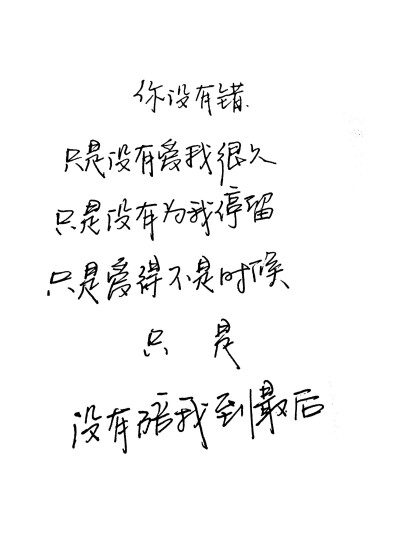 你没有错.
只是没有爱我很久
只是没有为我停留
只是爱得不是时候
只 是
没有陪我到最后